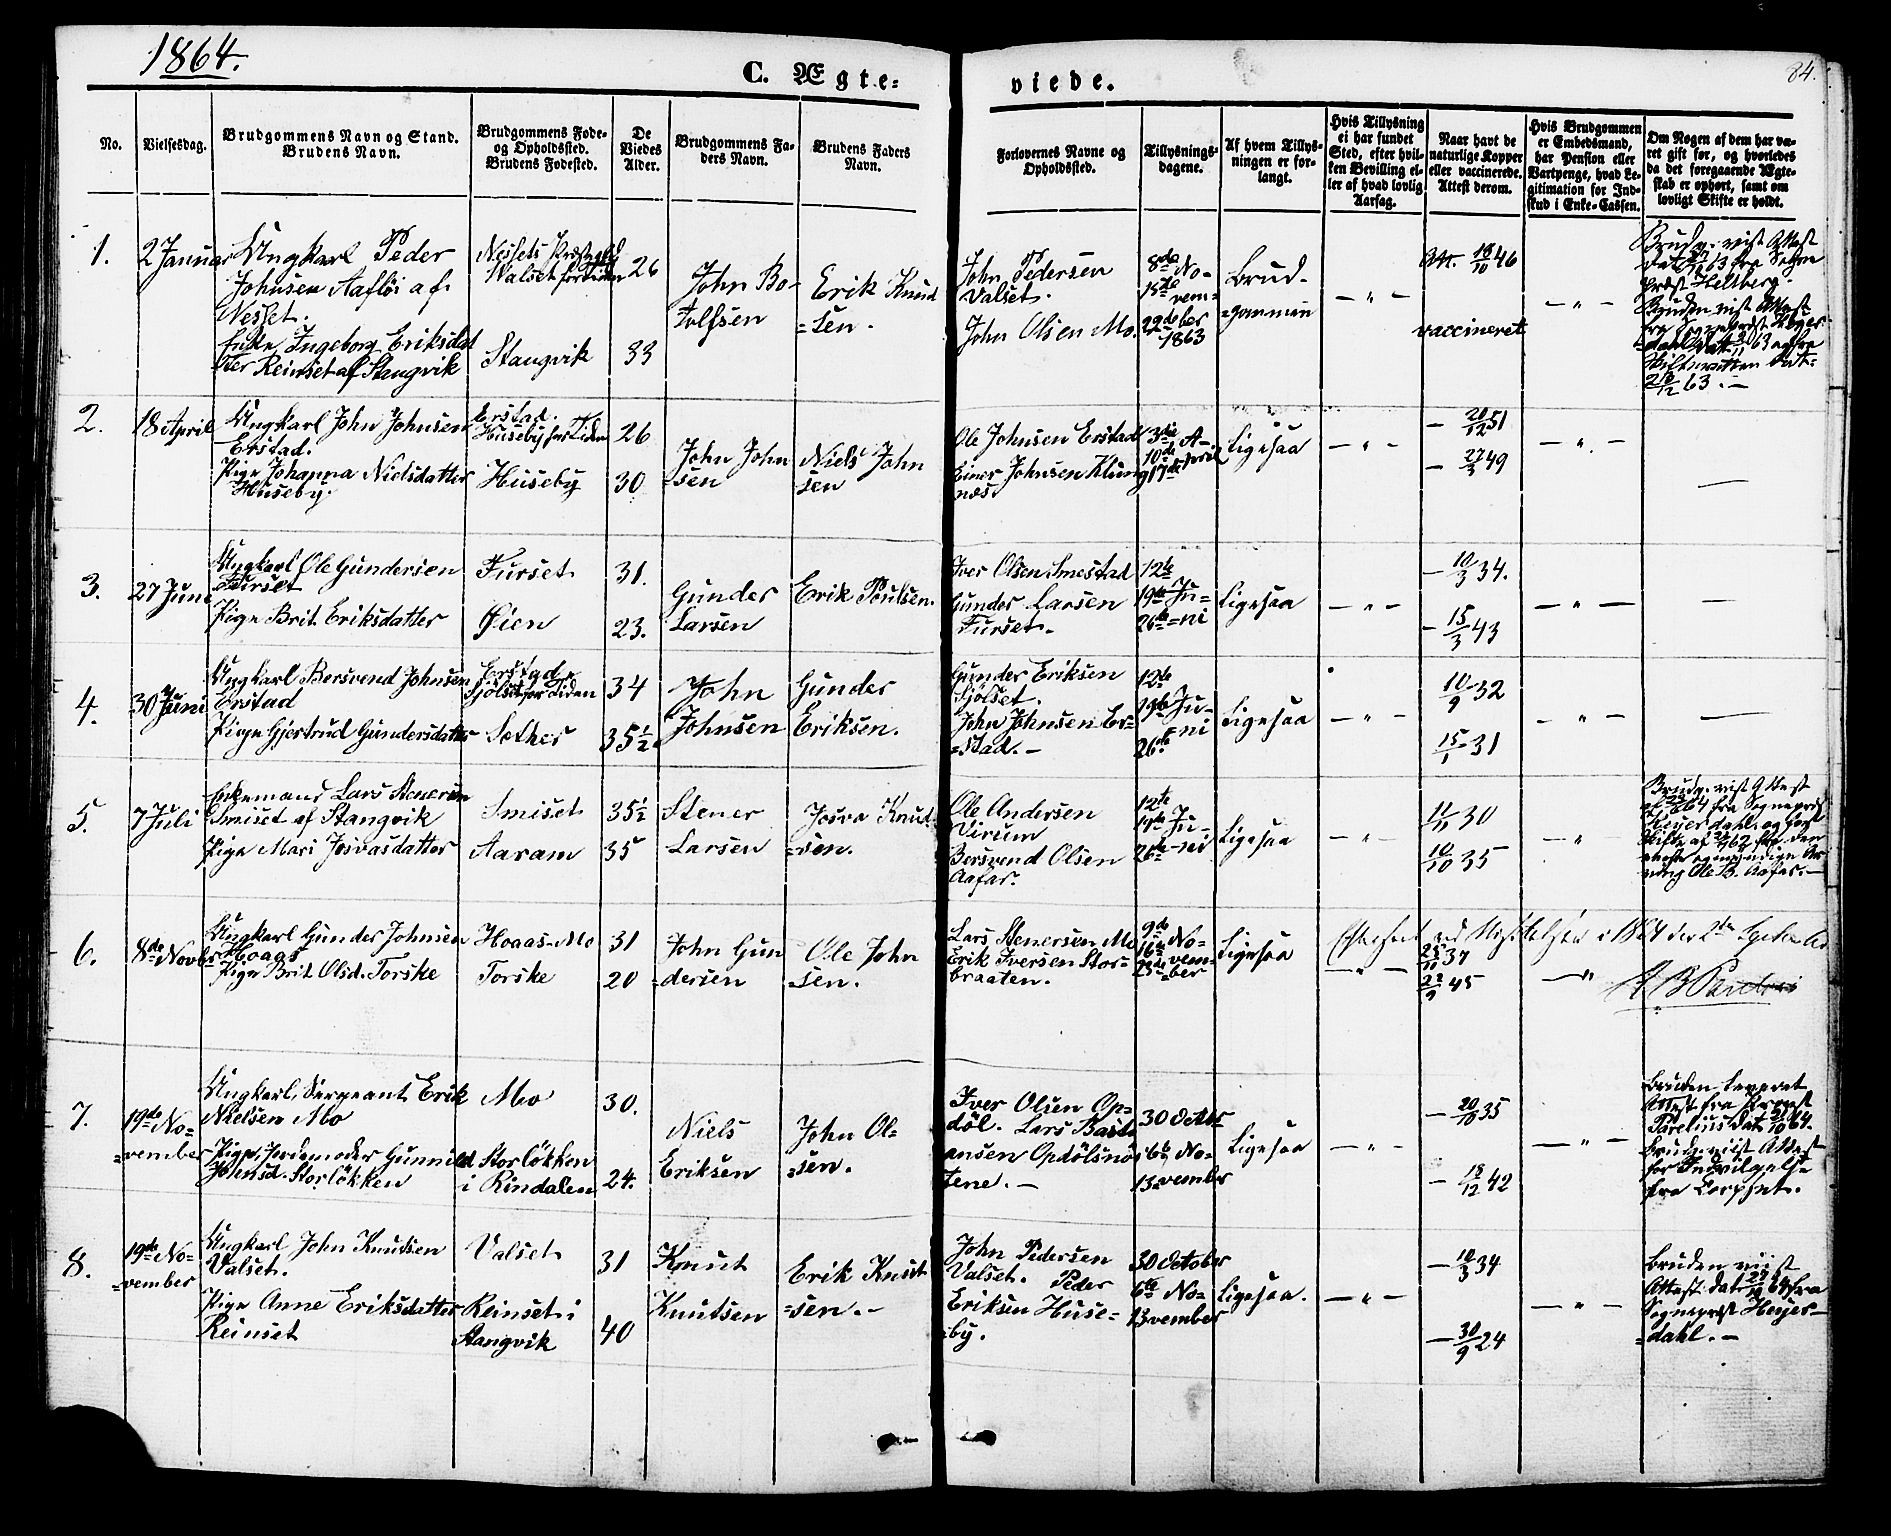 1864.
84.
C. Ægte=
viede.
No.
Vielsesdag.
Brudgommens Navn og Stand.
Brudens Navn.
Brudgommens Føde=
og Opholdssted.
Brudens Fødested.
De
Viedes
Alder.
Brudgommens Fa=
ders Navn.
Brudens Faders
Navn.
Forlovernes Navne og
Opholdssted.
Tillysnings=
dagene.
Af hvem Tillys=
ningen er for=
langt.
Hvis Tillysning
ei har fundet
Sted, efter hvil=
ken Bevilling el=
ler af hvad lovlig
Aarsag.
Naar havt de
naturlige Kopper
eller vaccinerede.
Attest derom.
Hvis Brudgommen
er Embedsmand,
har Pension eller
Vartpenge, hvad Le=
gitimation for Ind=
skud i Enke=Cassen.
Om Nogen af dem har væ=
ret gift før, og hvorledes
da det foregaaende Ægte=
skab er ophørt, samt om
lovligt Skifte er holdt.
1.
2 Januar
Ungkarl Peder
Johnsen Aafløi af
Nesset.
Enke Ingeborg Eriksdat
ter Reinset af Stangvik
Nessets Præstegjeld
Valset for Tiden
Stangvik
26
33
John Bo=
tolfsen
Erik Knud
=sen.
John Pedersen
Valset.
John Olsen Mo.
8de No=
15de vem=
22de ber
1863
Brud=
=gommen
— " —
Att. 18/10 46
vaccineret
— " —
Brudg. vist Attest
fra Sogne
præst Heltberg.
Bruden vist Attest
fra Sognepræst Heyer
=dahl
28/12 63. —
2.
18 April
Ungkarl John Johnsen
Erstad.
Pige Johanna Nielsdatter
Huseby.
Erstad.
Huseby for Tiden
Huseby
26
30
John John
sen
Niels John
sen
Ole Johnsen Erstad
Einer Johnsen Klung
næs.
3die A=
10de pril
17de
Ligesaa
— " —
— 20/12 51
— 27/3 49
— " —
—
3.
27 Juni
Ungkarl Ole Gundersen
Furset
Pige Brit Eriksdatter
Furset
Øien
31.
23.
Gunder
Larsen
Erik Poulsen.
Iver Olsen Smestad
Gunder Larsen
Furset.
12te
19te Ju=
26te =ni
Ligesaa
— " —
— 10/3 34.
— 15/3 43
— " —
—
4.
30 Juni
Ungkarl Bersvend Johnsen
Erstad
Pige Gjertrud Gundersdatter
Erstad
Sjølset for Tiden
Sæther
34
35½
John
Johnsen
Gunder
Eriksen.
Gunder Eriksen
Sjølset.
John Johnsen Er=
=stad. —
12te
19te Ju=
=ni
26te
Ligesaa
— " —
10/9 32
15/1 31
— " —
—
5.
7 Juli
Enkemand Lars Stenersen
Smiset af Stangvik
Pige Mari Josvasdatter
Smiset
Aaram
35½
35
Stener
Larsen
Josva Knud
=sen.
Ole Andersen
Virum
Bersvend Olsen
Aafar.
12te
19te Ju=
26te =ni
Ligesaa
— " —
11/11 30
10/10 35
— " —
Brudg. vist Attest
fra Sognepræst
Heyerdahl og for
Skifte af
Ole B. Aafar. —
6.
8de Novbr
Ungkarl Gunder Johnsen
Hoaas
Pige Brit Olsd. Torske
Hoaas-Mo
Torske
31
20
John Gun
=dersen
Ole John
=sen.
Lars Stenersen Mo
Erik Iversen Stor=
braaten.
9de No=
16de vem=
23de ber
Ligesaa
— " —
25/11 37
22/9 45
— " —
7.
19de No=
=vember
Ungkarl, Sergeant Erik
Nielsen Mo
Pige, Jordemoder Gunnild
Johnsd. Storløkken
Mo
Storløkken
i Rindalen
30.
24.
Niels
Eriksen
John Ol=
=sen.
Iver Olsen Op=
døl. Lars Bast
ansen Opdølsnæs
tene. —
30 Octbr
6te No=
13 vember
Ligesaa
— " —
— 20/10 35
— 18/12 42
— " —
Bruden leveret
Attest fra Provst
Parelius
Brudg. viist Attest
for Indvilgelse
fra Corpset.
8.
19de No=
=vember
Ungkarl John Knutsen
Valset.
Pige Anne Eriksdatter
Reinset
Valset
Reinset i
Stangvik
31
40
Knut
Knutsen
Erik Knut
=sen. —
John Pedersen
Valset. Peder
Eriksen Huse=
=by.
30 October
6te No=
13 vember
Ligesaa.
— " —
— 10/3 34
— 30/9 24
— " —
Bruden viist
Attest fra
Sognepræst Heyer=
=dahl. —